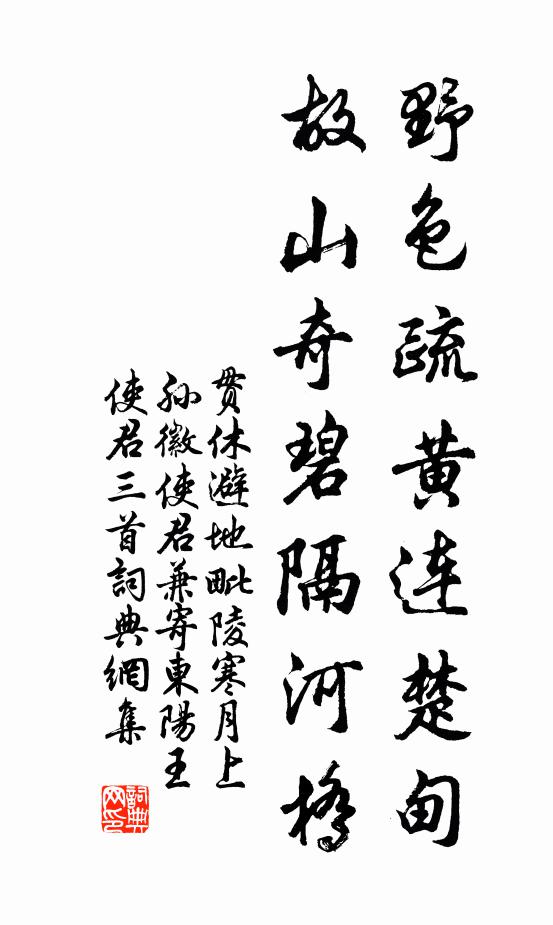 野色疏黄连楚甸
故山奇碧隔河橋
貫休避地毗陵寒月上
孫徽使君兼寄東陽王
使君三首詞典網集
詞典
网印